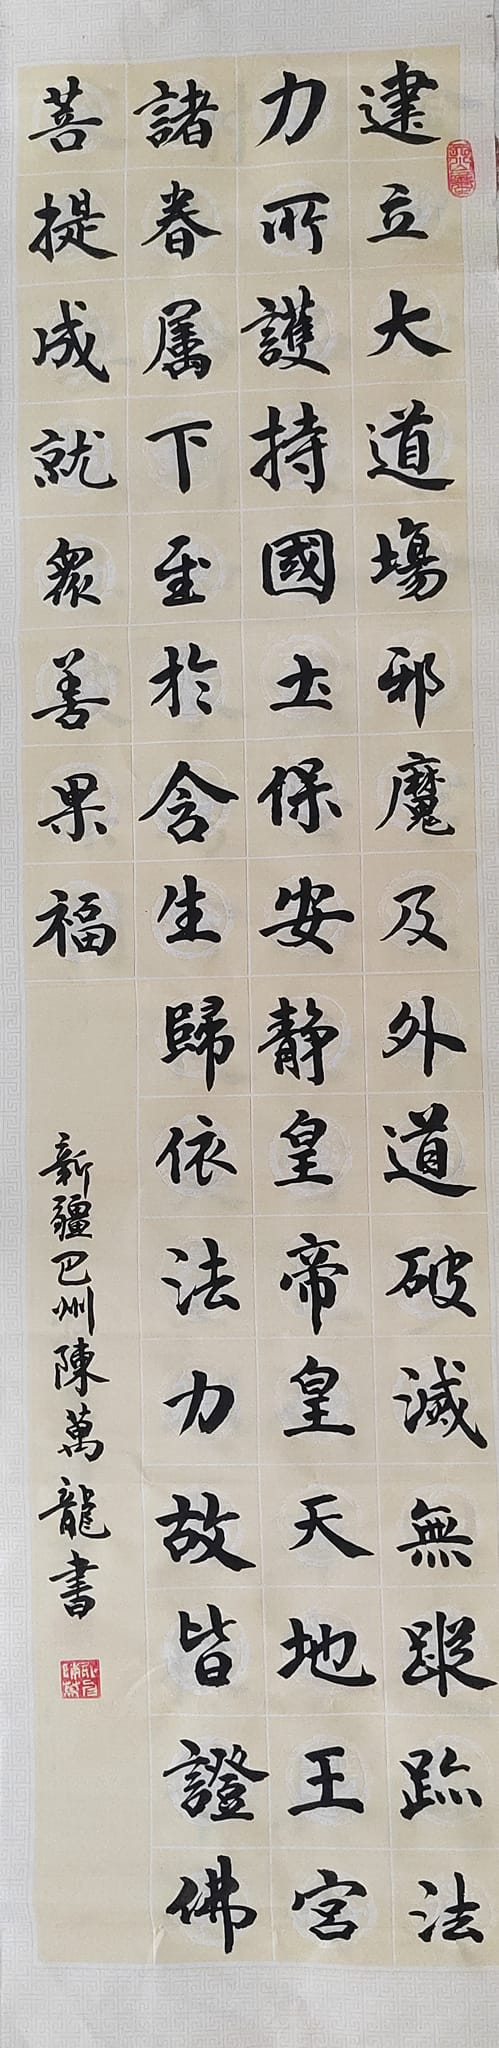 建立大道場邪魔及外道破滅無蹤跡法
力所護持國土保安靜皇帝皇天地王宮
諸眷属下至於含生歸依法力故皆證佛
菩提成就眾善果福
新疆巴州陳萬龍书